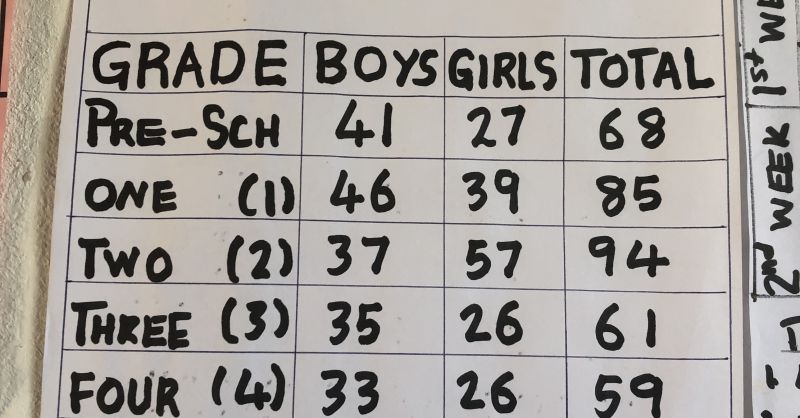 GRADE BOYS GIRLS TOTAL
PRE-SCH 41 27 68
ONE (1) 46 39 85
TWO (2) 37 57 94
THREE (3) 35 26 61
FOUR (4) 33 26 59
1st WE
2nd WEEK